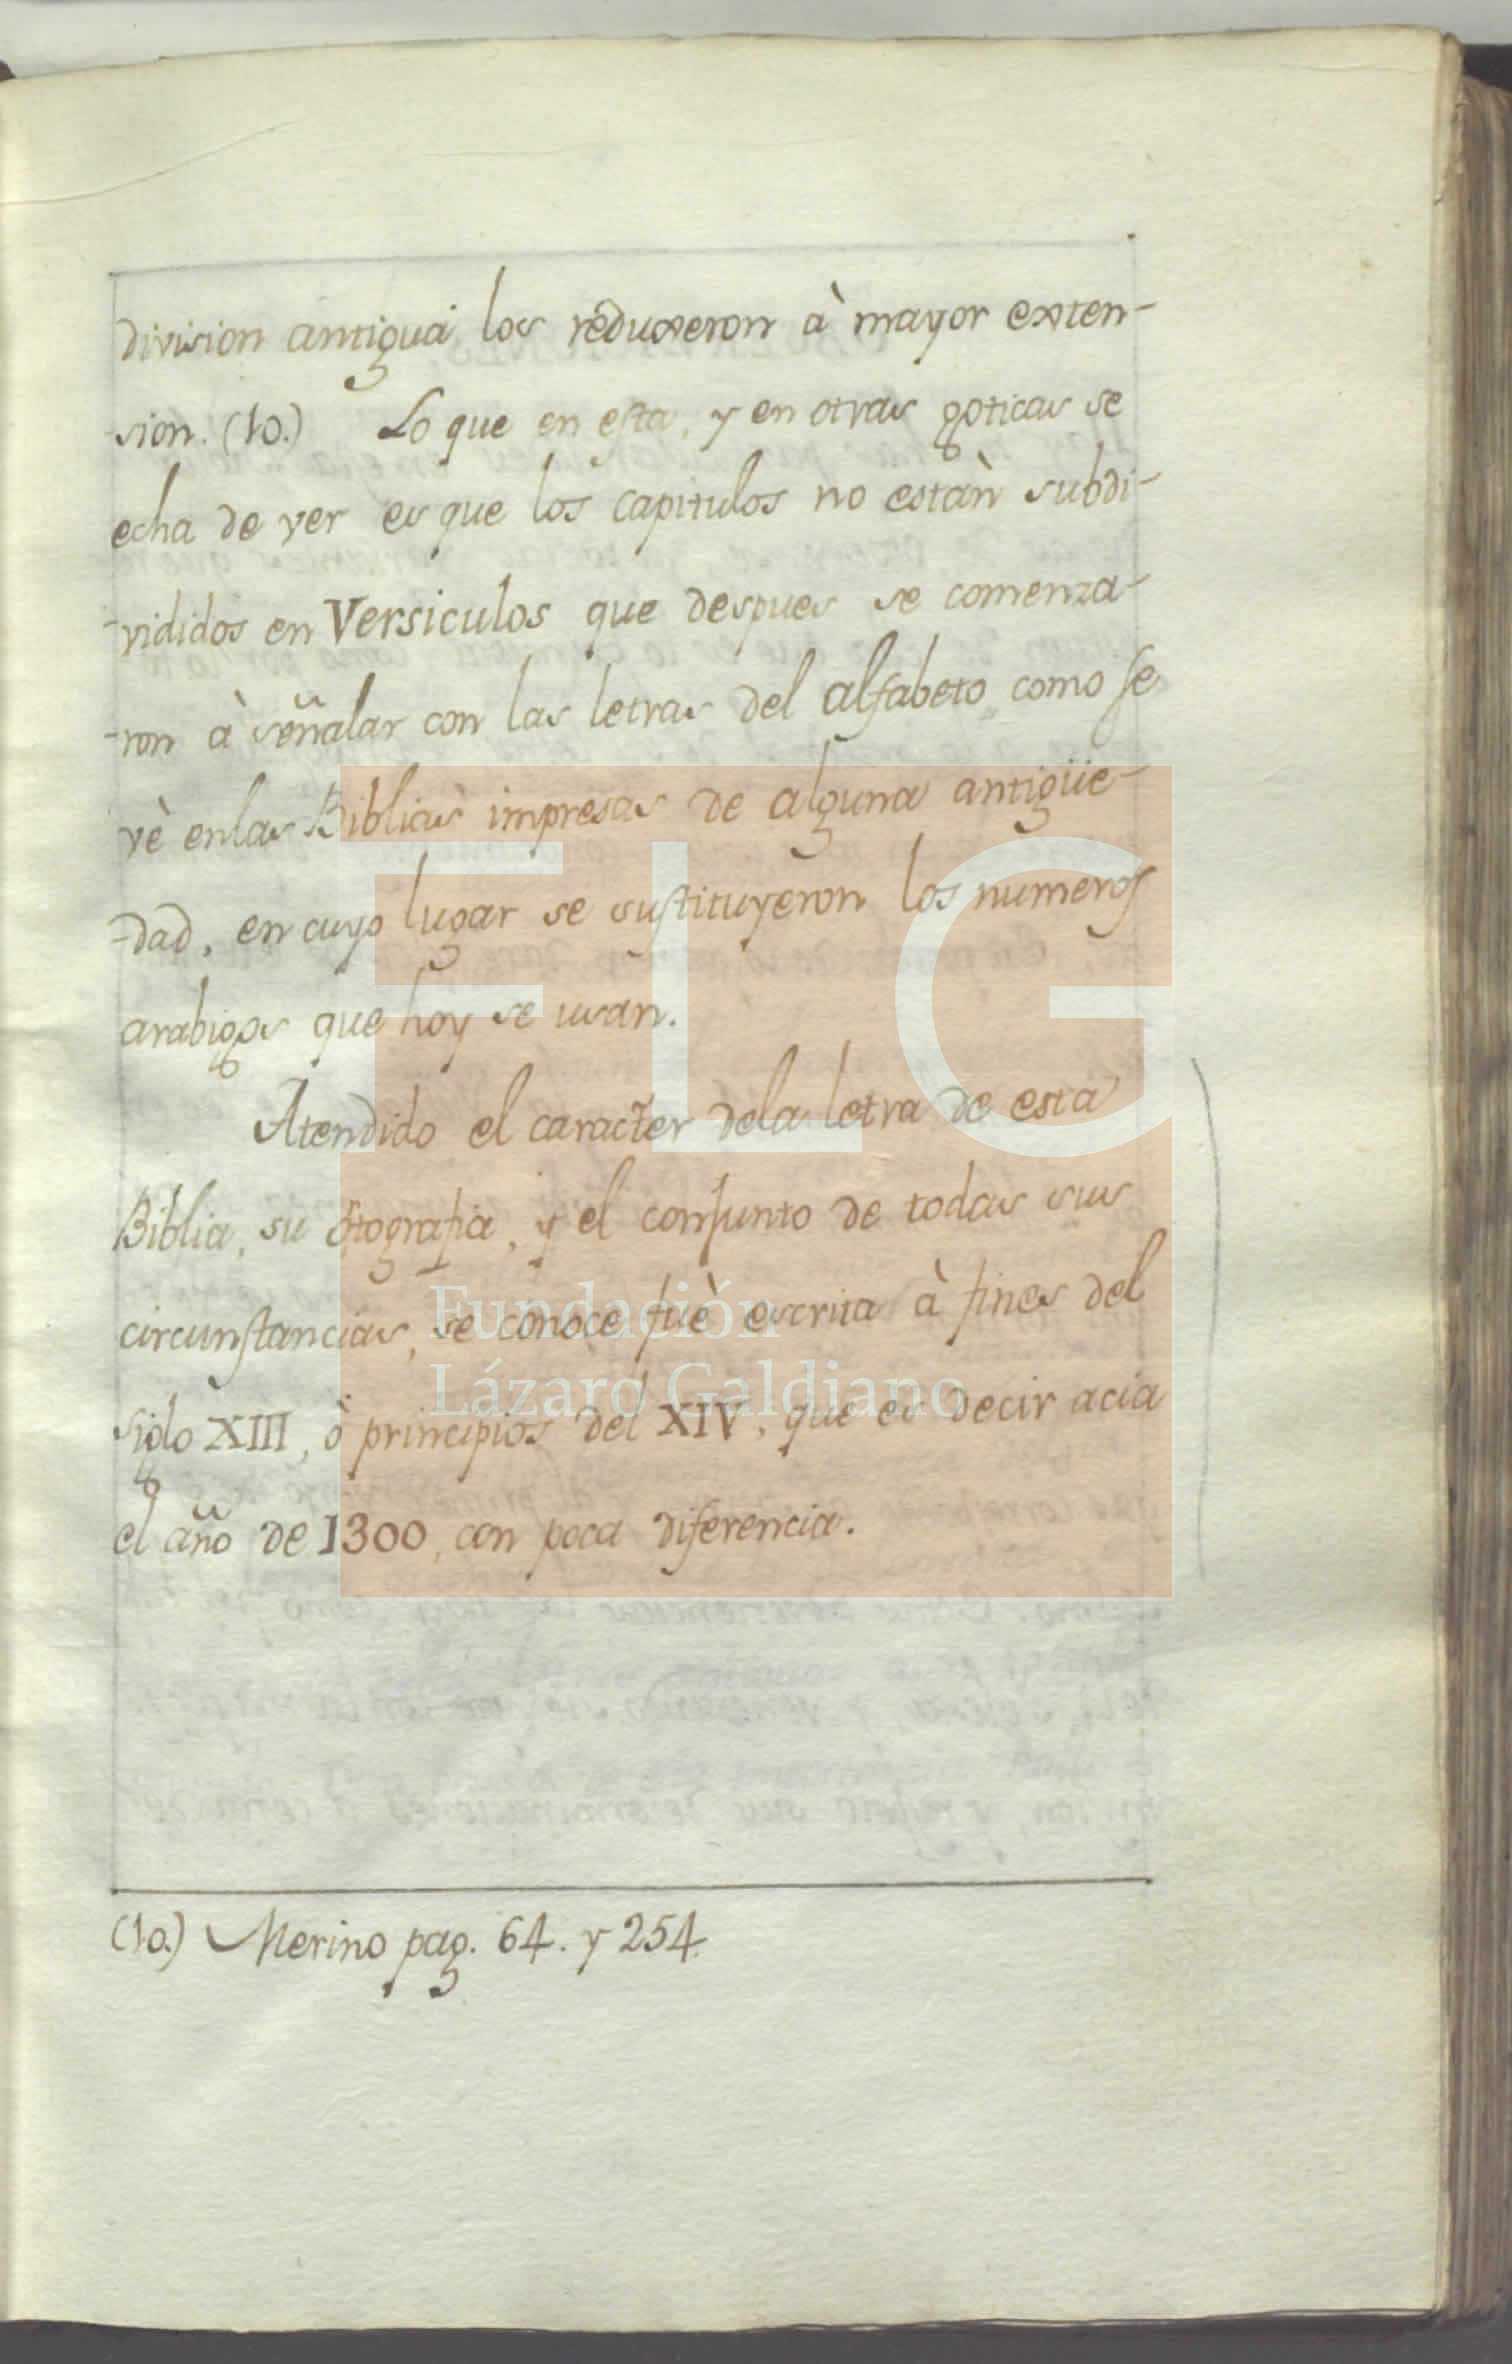 division antigua los reduxeron à mayor exten-
-sion. (10.) Lo que en esta, y en otras goticas se
echa de ver es que los capitulos no estàn subdi-
-vididos en Versiculos que despues se comenza-
-ron à señalar con las letras del alfabeto como se
vè enlas Biblias impresas de alguna antigüe-
-dad, en cuyo lugar se sustituyeron los numeros
arabigos que hoy se usan.
Atendido el caracter dela letra de esta
Biblia, su ortografia, y el conjunto de todas sus
circunstancias, se conoce fuè escrita à fines del
siglo XIII, ò principios del XIV, que es decir acia
el año de 1300, con poca diferencia.
(10.) Merino pag. 64. y 254.
FLG
Fundación
Lázaro Galdiano